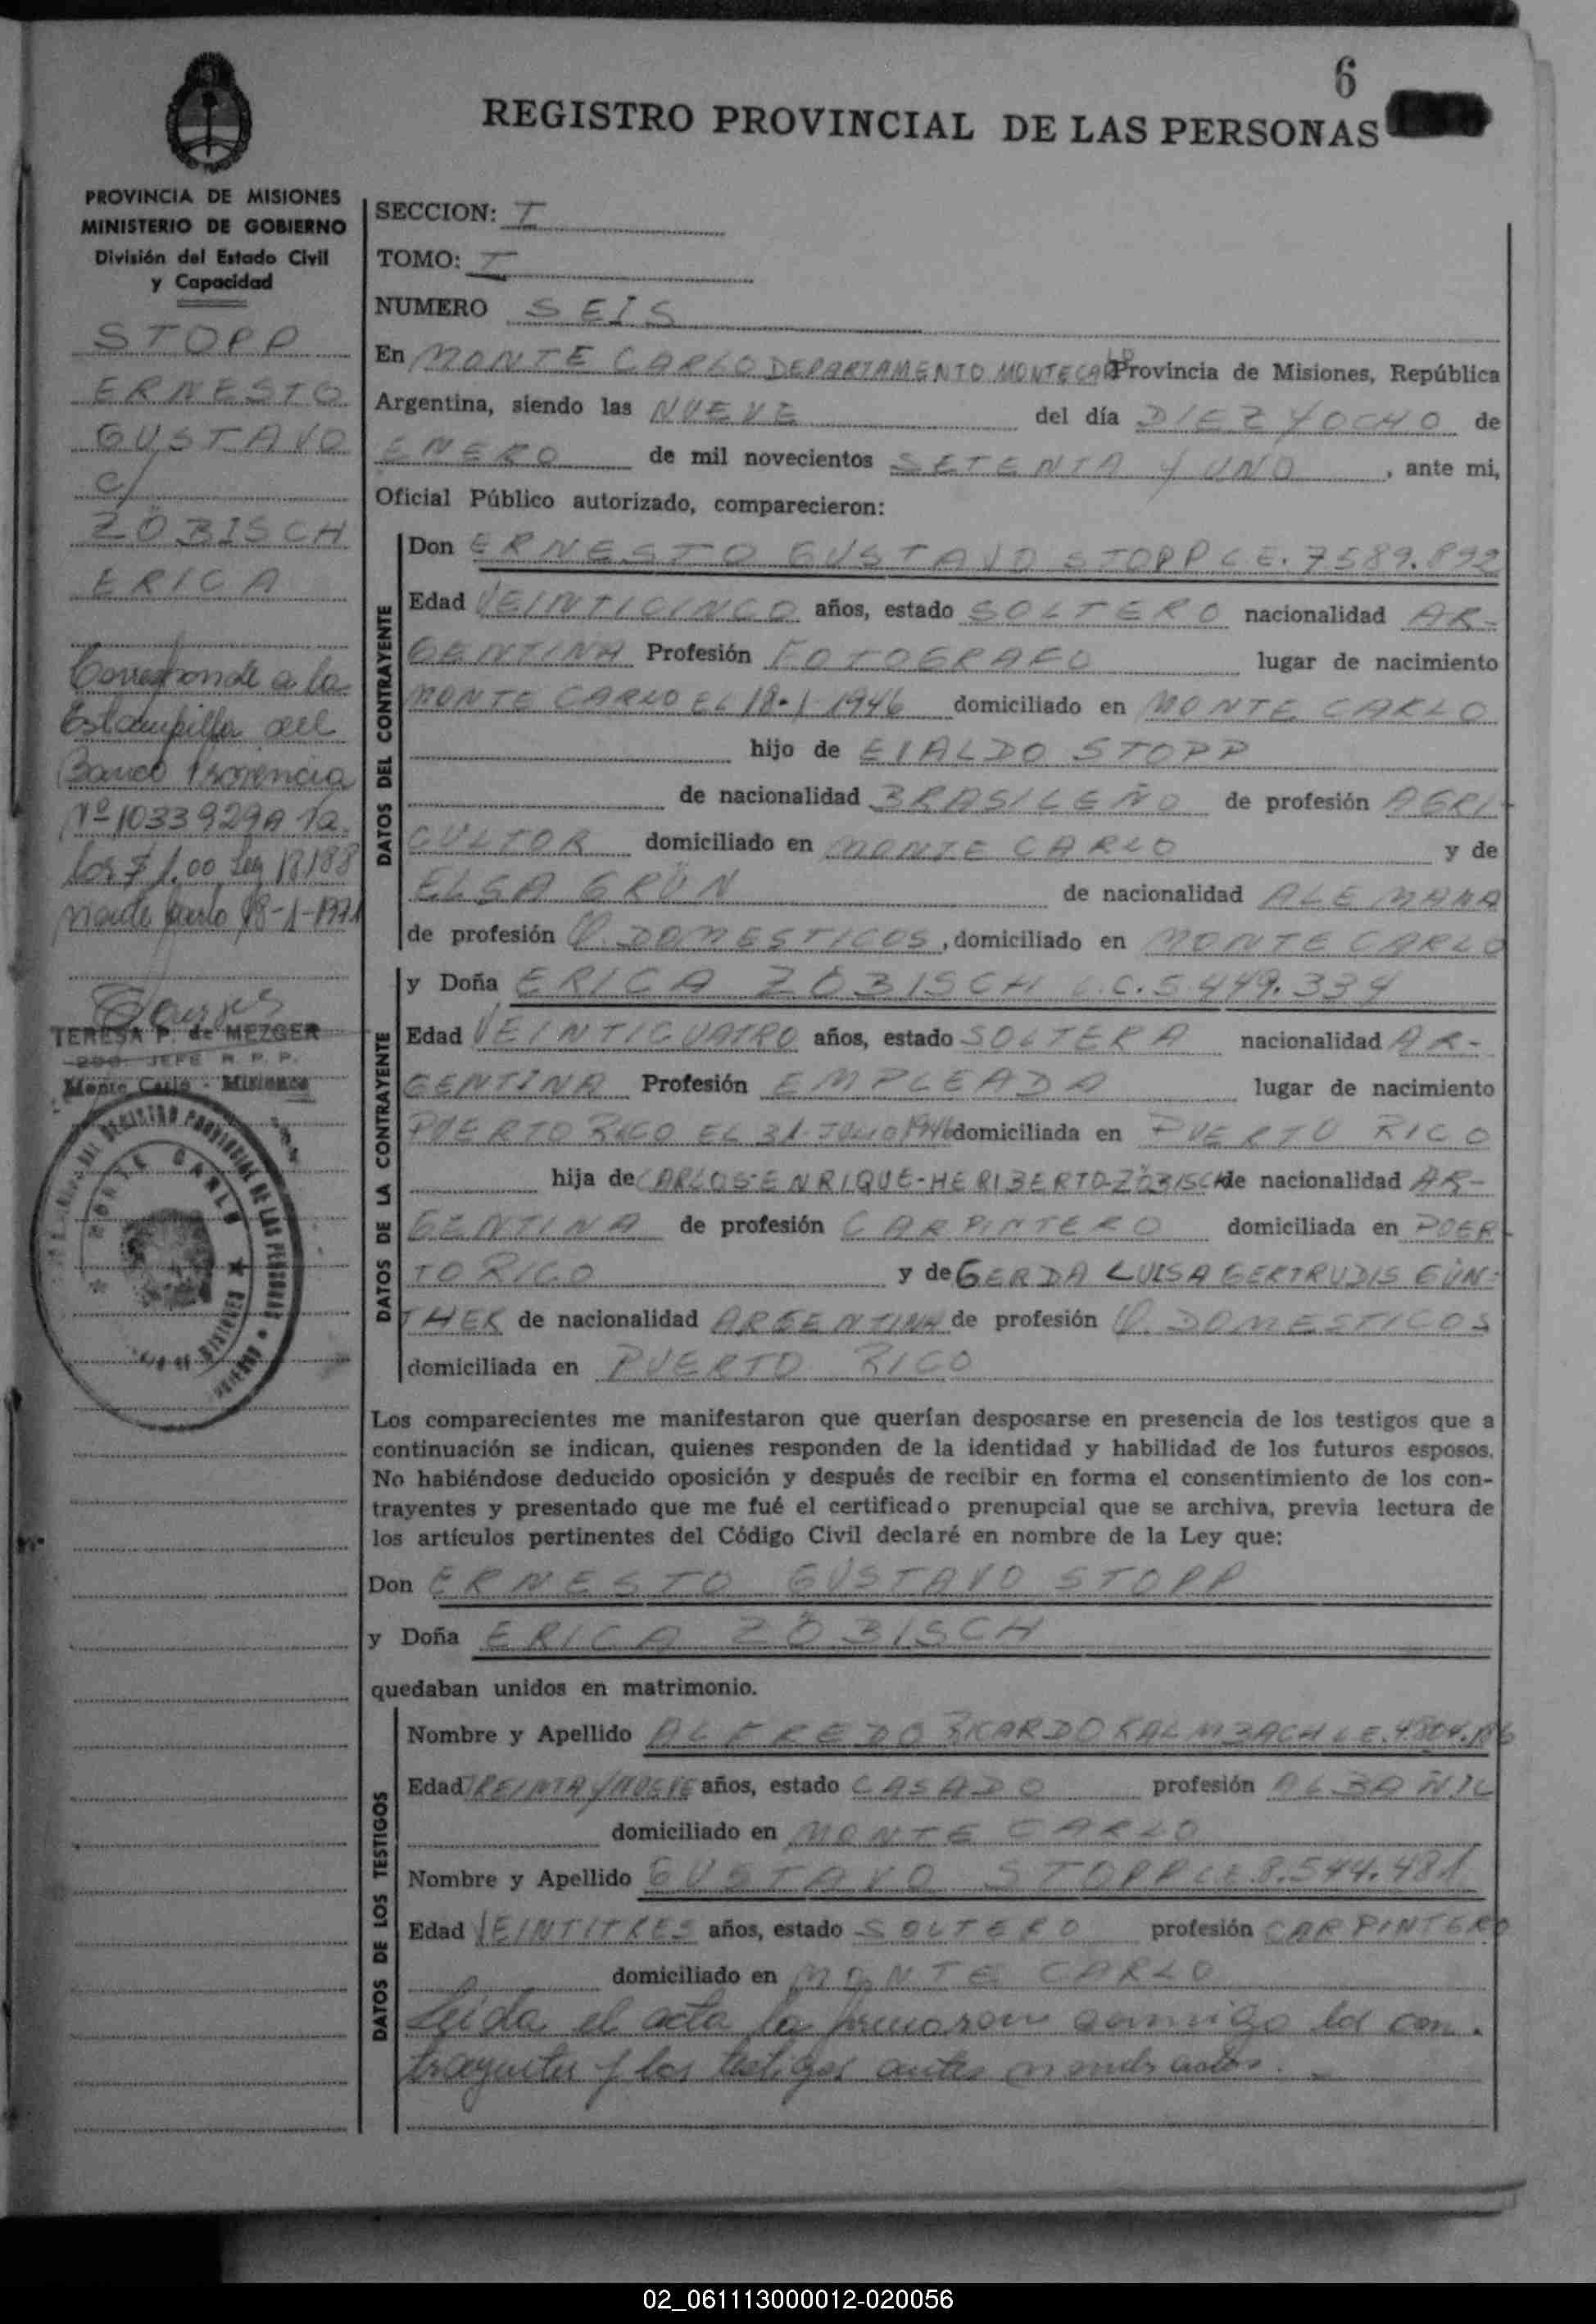 6
REGISTRO PROVINCIAL DE LAS PERSONAS
PROVINCIA DE MISIONES
MINISTERIO DE GOBIERNO
División del Estado Civil
y Capacidad
STOPP
ERNESTO
GUSTAVO
c/
ZÖBISCH
ERICA
Corresponde a la
Estampilla del
Banco Provincia
Nº 1033929A
los $ 1.00 Ley 18188
Monte Carlo 18-1-1971
TERESA P. de MEZGER
JEFE R. P. P.
Monte Carlo - Misiones
MONTE CARLO
MISIONES
SECCION: I
TOMO: I
NUMERO SEIS
En MONTE CARLO DEPARTAMENTO MONTECARLO Provincia de Misiones, República
Argentina, siendo las NUEVE del día DIEZ Y OCHO de
ENERO de mil novecientos SETENTA Y UNO, ante mi,
Oficial Público autorizado, comparecieron:
DATOS DEL CONTRAYENTE
Don ERNESTO GUSTAVO STOPP C.E. 7589.892
Edad VEINTICINCO años, estado SOLTERO nacionalidad AR-
GENTINA Profesión FOTOGRAFO lugar de nacimiento
MONTE CARLO EL 18-1-1946 domiciliado en MONTE CARLO
hijo de EIALDO STOPP
de nacionalidad BRASILEÑO de profesión AGRI-
CULTOR domiciliado en MONTE CARLO y de
ELSA GRÜN de nacionalidad ALEMANA
de profesión Q. DOMESTICOS, domiciliado en MONTE CARLO
DATOS DE LA CONTRAYENTE
y Doña ERICA ZÖBISCH L.C. 5.449.334
Edad VEINTICUATRO años, estado SOLTERA nacionalidad AR-
GENTINA Profesión EMPLEADA lugar de nacimiento
PUERTO RICO EL 31 JULIO 1946 domiciliada en PUERTO RICO
hija de CARLOS-ENRIQUE-HERIBERTO-ZÖBISCH de nacionalidad AR-
GENTINA de profesión CARPINTERO domiciliada en PUER-
TO RICO y de GERDA LUISA GERTRUDIS GÜN-
THER de nacionalidad ARGENTINA de profesión Q. DOMESTICOS
domiciliada en PUERTO RICO
Los comparecientes me manifestaron que querían desposarse en presencia de los testigos que a
continuación se indican, quienes responden de la identidad y habilidad de los futuros esposos.
No habiéndose deducido oposición y después de recibir en forma el consentimiento de los con-
trayentes y presentado que me fué el certificado prenupcial que se archiva, previa lectura de
los artículos pertinentes del Código Civil declaré en nombre de la Ley que:
Don ERNESTO GUSTAVO STOPP
y Doña ERICA ZÖBISCH
quedaban unidos en matrimonio.
DATOS DE LOS TESTIGOS
Nombre y Apellido ALFREDO RICARDO KALMBACH L.E. 4.804.186
Edad TREINTA Y NUEVE años, estado CASADO profesión ALBAÑIL
domiciliado en MONTE CARLO
Nombre y Apellido GUSTAVO STOPP L.E. 8.544.481
Edad VEINTITRES años, estado SOLTERO profesión CARPINTERO
domiciliado en MONTE CARLO
Leida el acta la firmaron conmigo los con-
trayentes y los testigos antes nombrados.
02_061113000012-020056